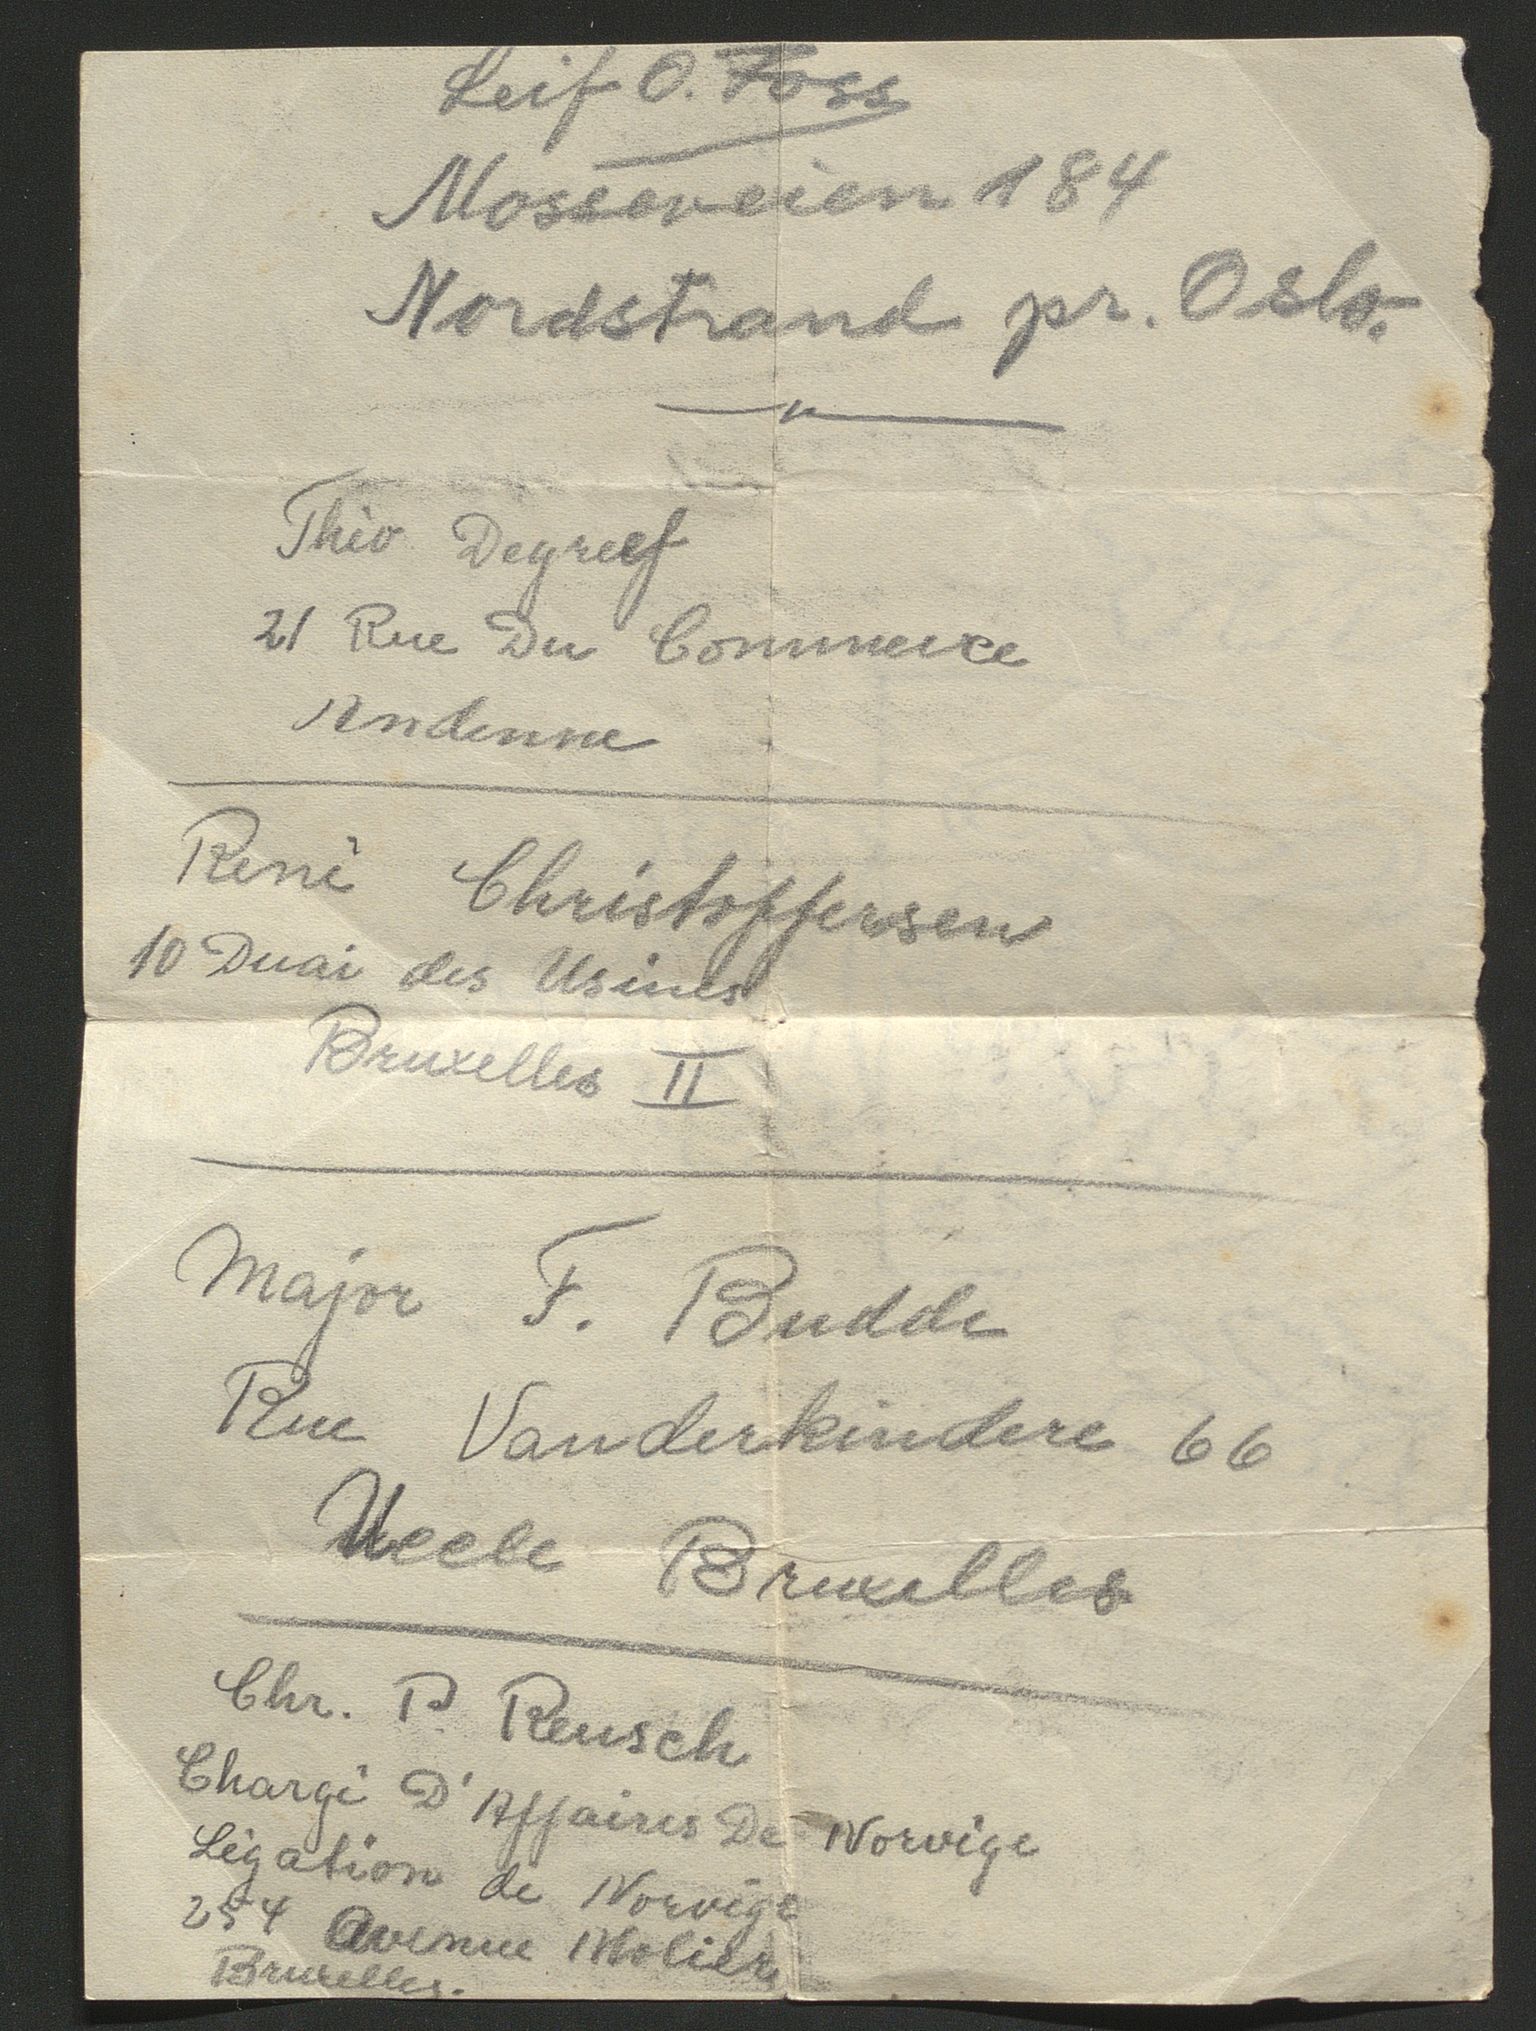 Leif O. Foss
Mosseveien 184
Nordstrand pr. Oslo.
Théo Degreef
21 Rue Du Commerce
Andenne
René Christoffersen
10 Quai des Usines
Bruxelles II
Major F. Budde
Rue Vanderkindere 66
Uccle Bruxelles
Chr. P. Reusch
Chargé D'Affaires De Norvège
Légation de Norvège
254 Avenue Molière
Bruxelles.